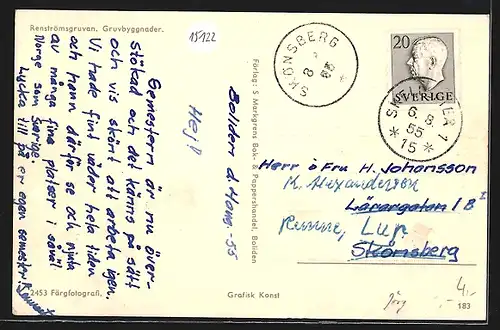 Renströmsgruvan. Gruvbyggnader.
15122
Hej!
Boliden d. 4/aug.-55
Semestern är nu över-
stökad och det känns på sätt
och vis skönt att arbeta igen.
Vi hade fint väder hela tiden
och hann därför se och njuta
av många fina platser i såväl
Norge som Sverige.
Lycka till på er egen semester
Förlag: S. Markgrens Bok- & Pappershandel, Boliden
SKÖNSBERG
8
55
20
SVERIGE
6. 8
55
* 15 *
Herr o Fru H. Johansson
K. Alexandersson
Lärargatan 18 I
Remme, Lup
Skönsberg
2453 Färgfotografi.
Grafisk Konst
4,-
183